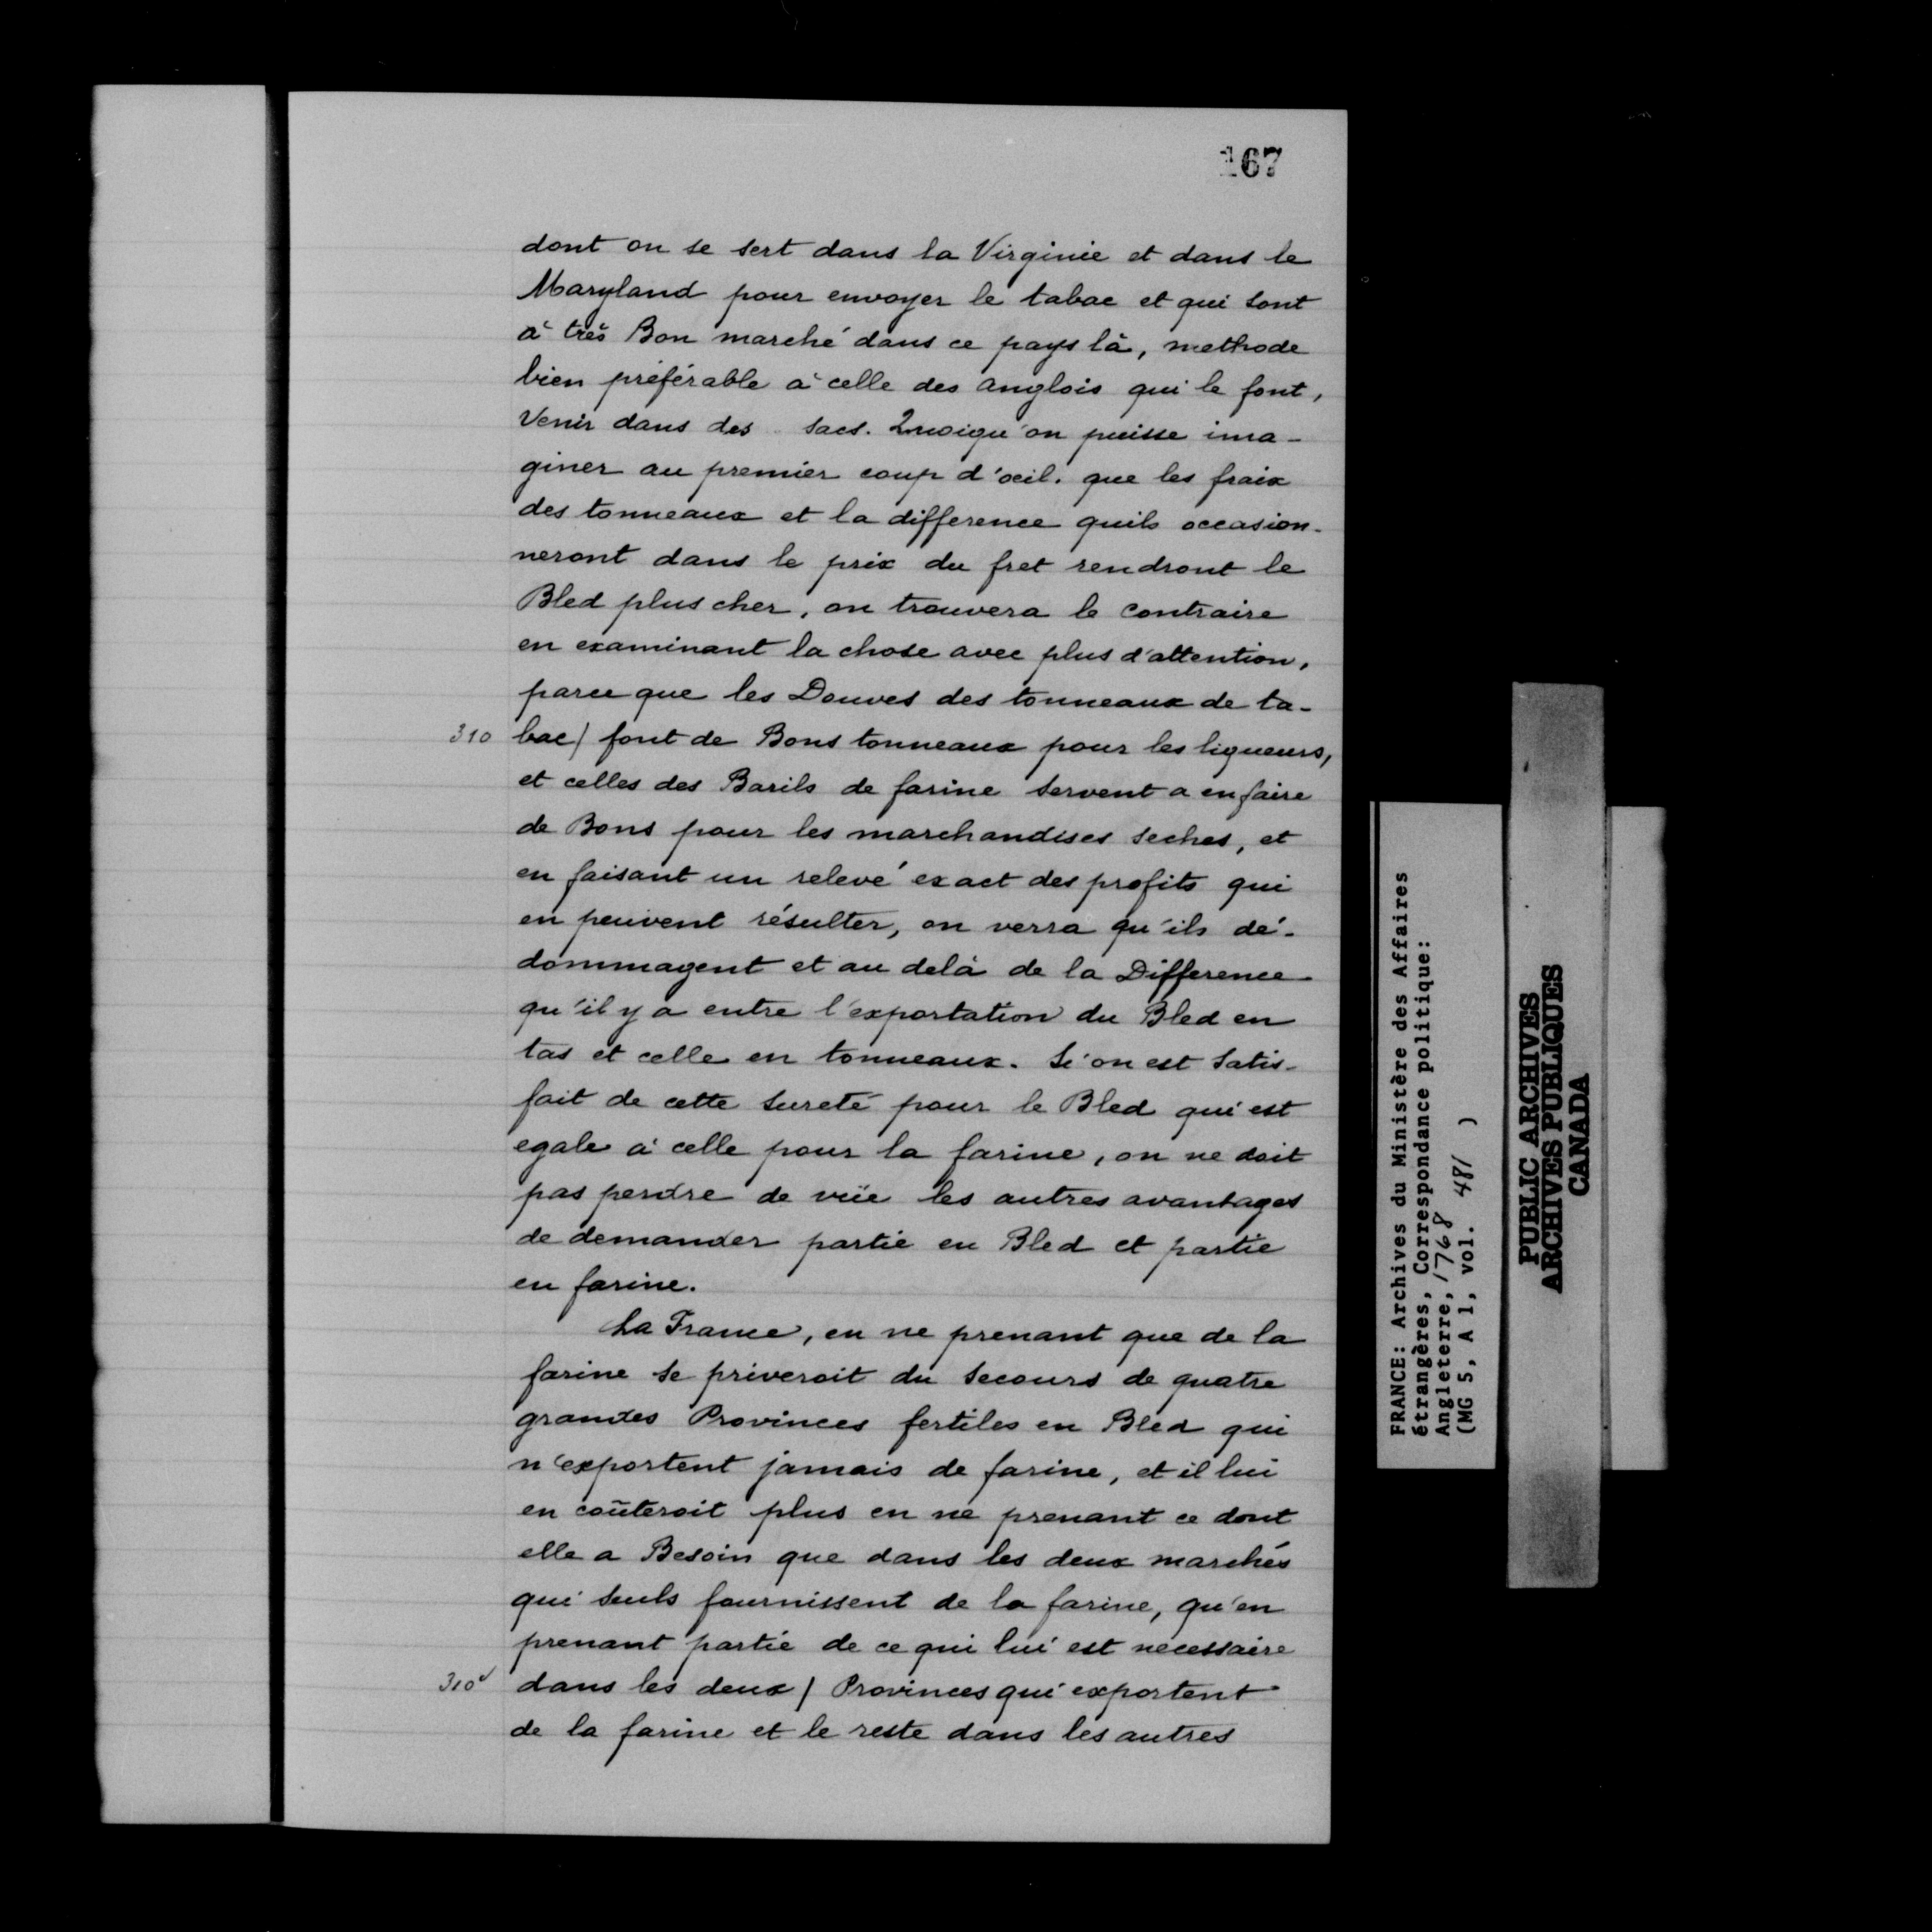 167
dont on se sert dans la Virginie et dans le
Maryland pour envoyer le tabac et qui sont
à très Bon marché dans ce pays là, methode
bien préférable à celle des anglois qui le font,
Venir dans des sacs. Quoiqu'on puisse ima-
giner au premier coup d'oeil. que les fraix
des tonneaux et la difference quils occasion-
neront dans le prix du fret rendront le
Bled plus cher, on trouvera le contraire
en examinant la chose avec plus d'attention,
parce que les Douves des tonneaux de ta-
310 bac/ font de Bons tonneaux pour les liqueurs,
et celles des Barils de farine servent a en faire
de Bons pour les marchandises seches, et
en faisant un relevé exact des profits qui
en peuvent résulter, on verra qu'ils dé-
dommagent et au delà de la Difference
qu'il y a entre l'exportation du Bled en
tas et celle en tonneaux. Si on est satis-
fait de cette sureté pour le Bled qui est
egale à celle pour la farine, on ne doit
pas perdre de vüe les autres avantages
de demander partie en Bled et partie
en farine.
La France, en ne prenant que de la
farine se priveroit du secours de quatre
grandes Provinces fertiles en Bled qui
n'exportent jamais de farine, et il lui
en coûteroit plus en ne prenant ce dont
elle a Besoin que dans les deux marchés
qui seuls fournissent de la farine, qu'en
prenant partie de ce qui lui est necessaire
310v dans les deux / Provinces qui exportent
de la farine et le reste dans les autres
FRANCE: Archives du Ministère des Affaires
étrangères, Correspondance politique:
Angleterre, 1768
(MG 5, A 1, vol. 481 )
PUBLIC ARCHIVES
ARCHIVES PUBLIQUES
CANADA